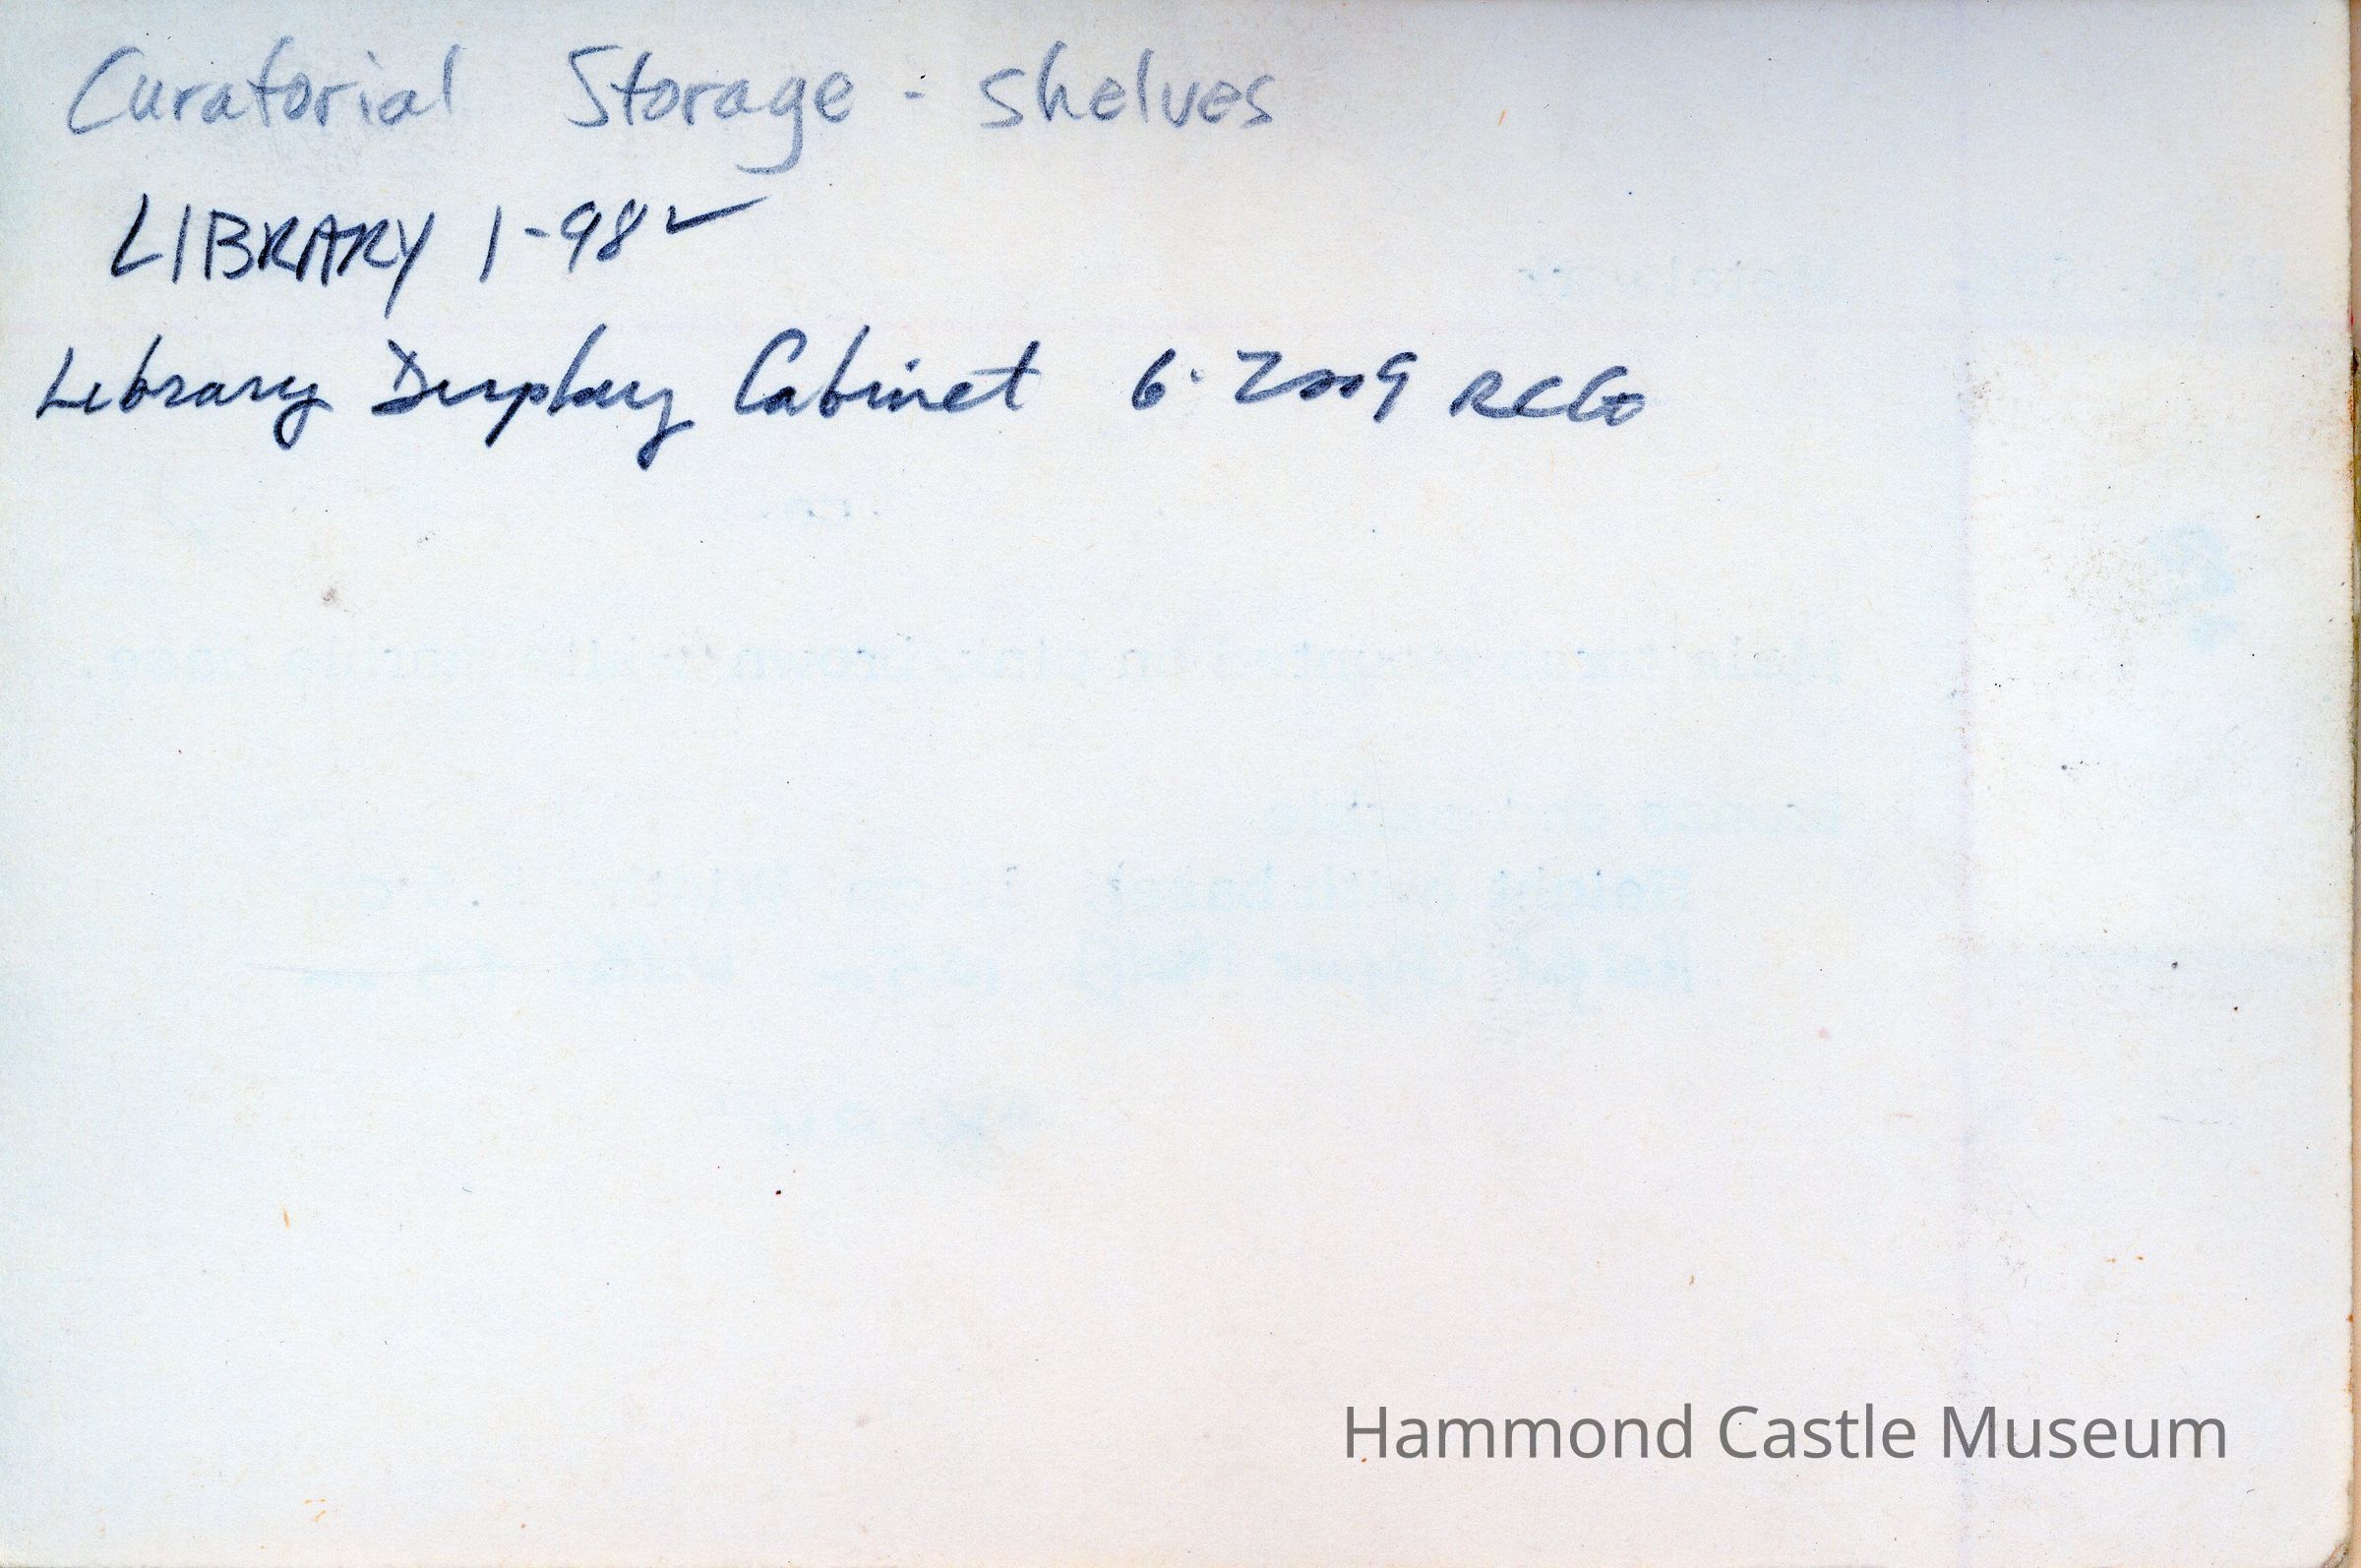 Curatorial Storage - shelves
LIBRARY 1-98 ✓
Library Display Cabinet 6-2009
Hammond Castle Museum